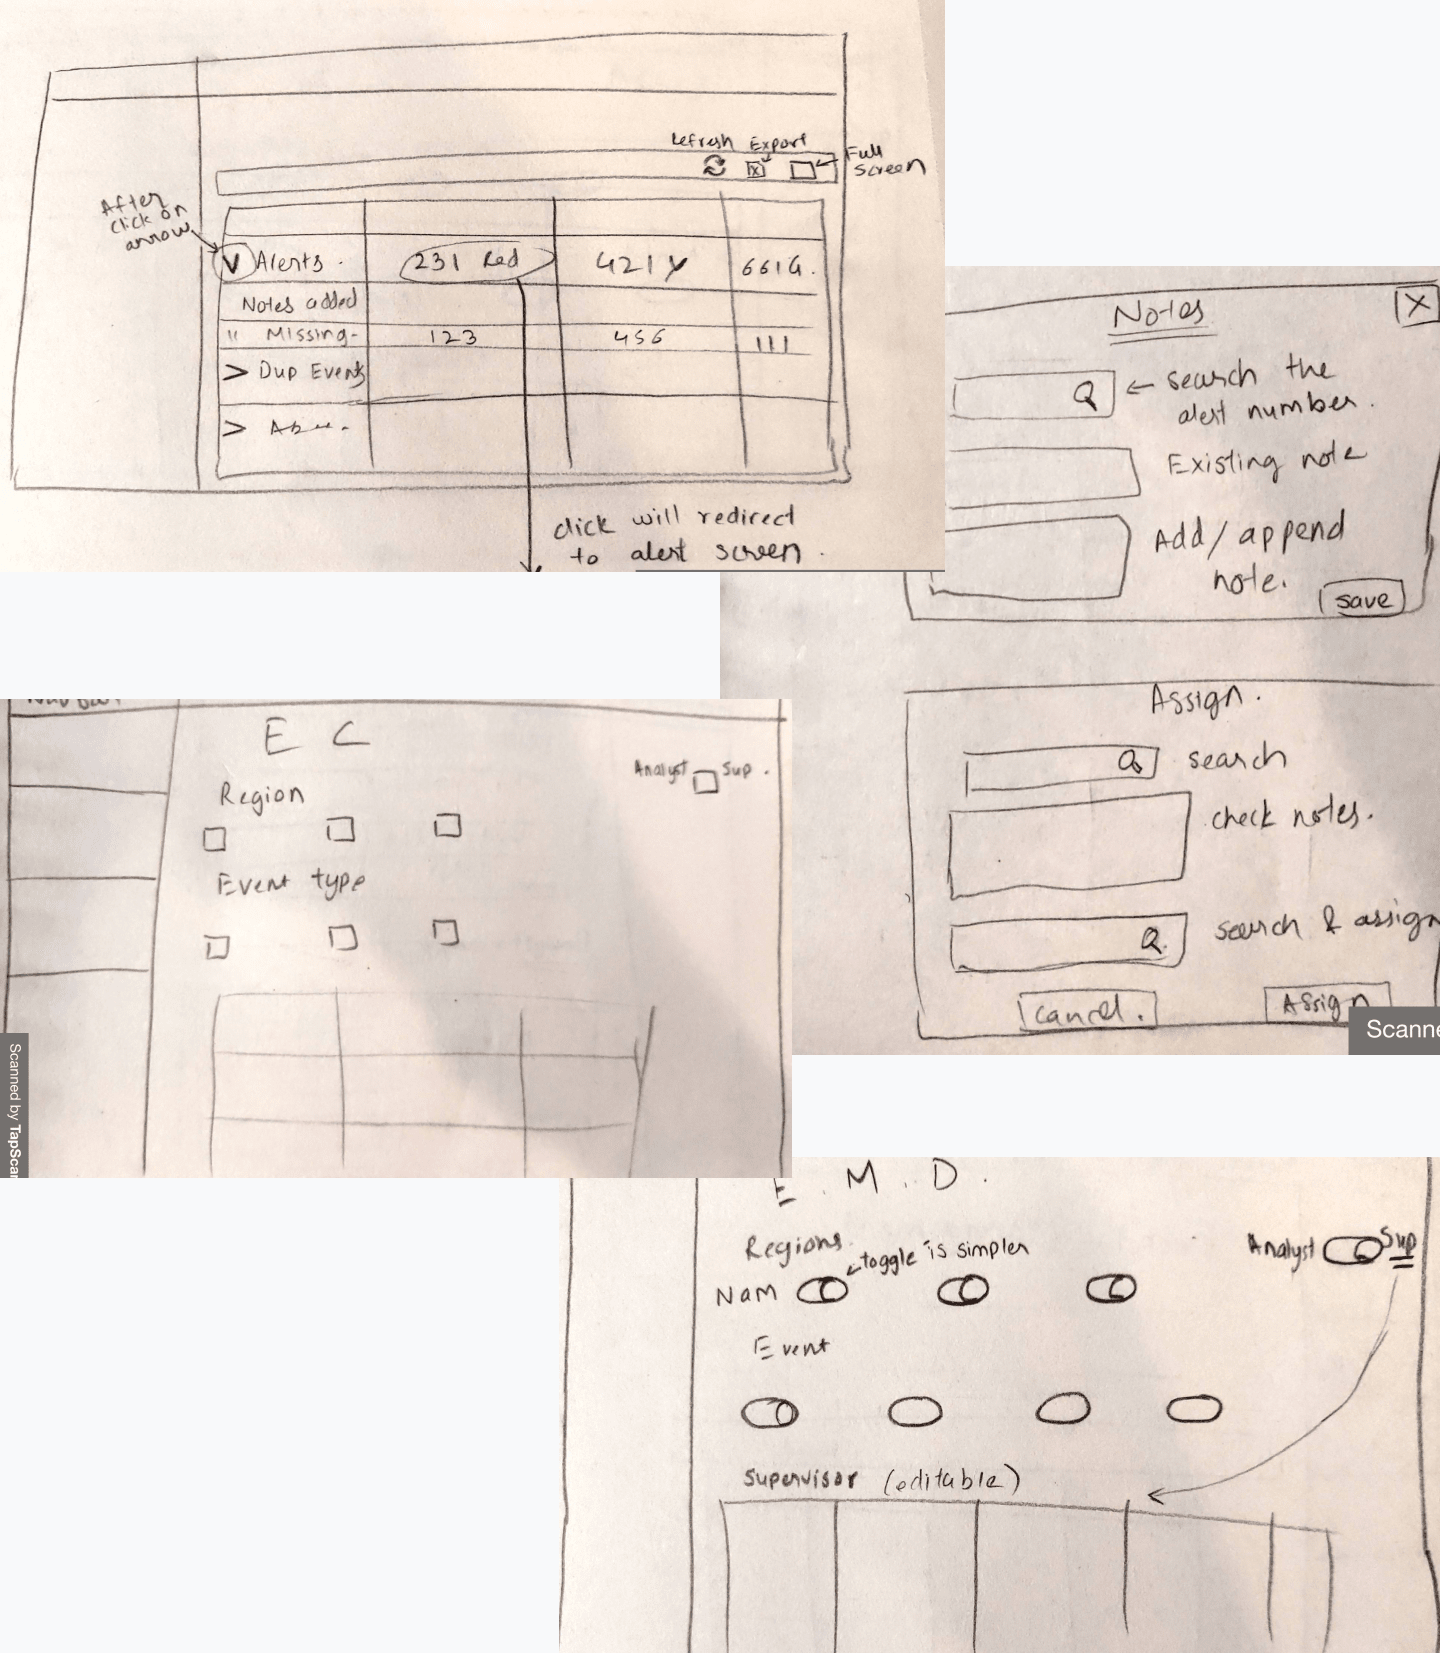 Refresh Export
Full
screen
After
click on
arrow
V Alerts .
231 Red
421 Y
661 G.
Notes added
" Missing-
123
456
111
> Dup Events
>
click will redirect
to alert screen .
Notes
X
search the
alert number .
Existing note
Add/append
note.
save
Assign .
search
check notes.
search & assign
cancel .
Assign
Scanne
Nav bar
E C
Analyst Sup .
Region
Event type
Scanned by TapScan
E . M . D .
Regions
toggle is simpler
Analyst Sup
Nam
Event
Supervisor (editable)